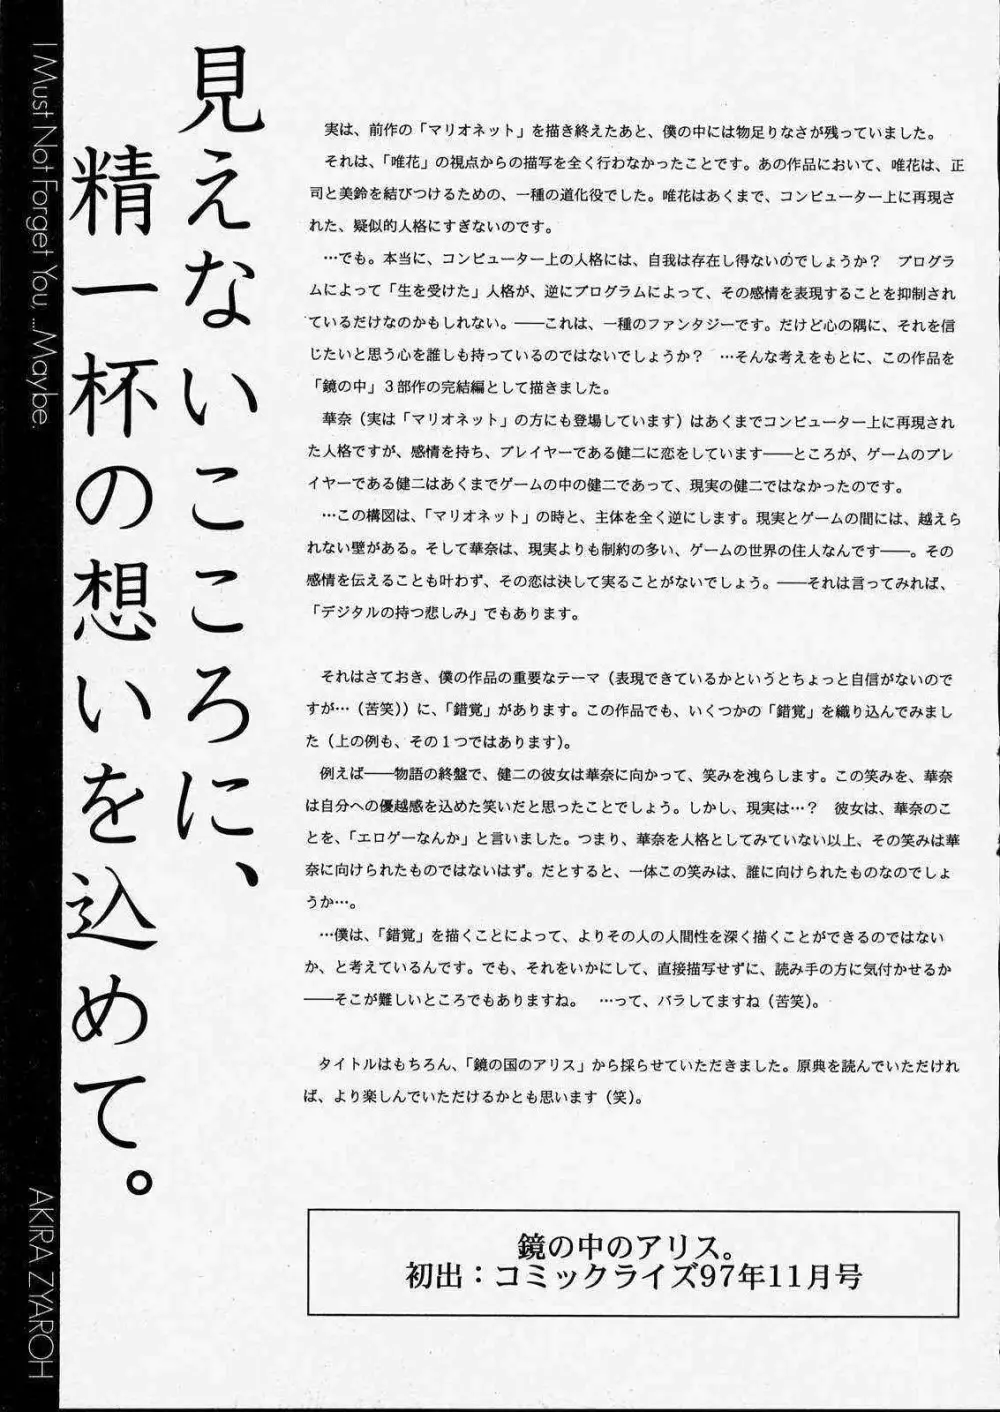 見えないこころに、
精一杯の想いを込めて。
I Must Not Forget You, ...Maybe.
AKIRA ZYAROH
実は、前作の「マリオネット」を描き終えたあと、僕の中には物足りなさが残っていました。
それは、「唯花」の視点からの描写を全く行わなかったことです。あの作品において、唯花は、正
司と美鈴を結びつけるための、一種の道化役でした。唯花はあくまで、コンピューター上に再現さ
れた、疑似的人格にすぎないのです。
…でも。本当に、コンピューター上の人格には、自我は存在し得ないのでしょうか？　プログラ
ムによって「生を受けた」人格が、逆にプログラムによって、その感情を表現することを抑制され
ているだけなのかもしれない。――これは、一種のファンタジーです。だけど心の隅に、それを信
じたいと思う心を誰しも持っているのではないでしょうか？　…そんな考えをもとに、この作品を
「鏡の中」３部作の完結編として描きました。
華奈（実は「マリオネット」の方にも登場しています）はあくまでコンピューター上に再現され
た人格ですが、感情を持ち、プレイヤーである健二に恋をしています――ところが、ゲームのプレ
イヤーである健二はあくまでゲームの中の健二であって、現実の健二ではなかったのです。
…この構図は、「マリオネット」の時と、主体を全く逆にします。現実とゲームの間には、越えら
れない壁がある。そして華奈は、現実よりも制約の多い、ゲームの世界の住人なんです――。その
感情を伝えることも叶わず、その恋は決して実ることがないでしょう。――それは言ってみれば、
「デジタルの持つ悲しみ」でもあります。
それはさておき、僕の作品の重要なテーマ（表現できているかというとちょっと自信がないので
すが…（苦笑））に、「錯覚」があります。この作品でも、いくつかの「錯覚」を織り込んでみまし
た（上の例も、その１つではあります）。
例えば――物語の終盤で、健二の彼女は華奈に向かって、笑みを洩らします。この笑みを、華奈
は自分への優越感を込めた笑いだと思ったことでしょう。しかし、現実は…？　彼女は、華奈のこ
とを、「エロゲーなんか」と言いました。つまり、華奈を人格としてみていない以上、その笑みは華
奈に向けられたものではないはず。だとすると、一体この笑みは、誰に向けられたものなのでしょ
うか…。
…僕は、「錯覚」を描くことによって、よりその人の人間性を深く描くことができるのではない
か、と考えているんです。でも、それをいかにして、直接描写せずに、読み手の方に気付かせるか
――そこが難しいところでもありますね。　…って、バラしてますね（苦笑）。
タイトルはもちろん、「鏡の国のアリス」から採らせていただきました。原典を読んでいただけれ
ば、より楽しんでいただけるかとも思います（笑）。
鏡の中のアリス。
初出：コミックライズ97年11月号